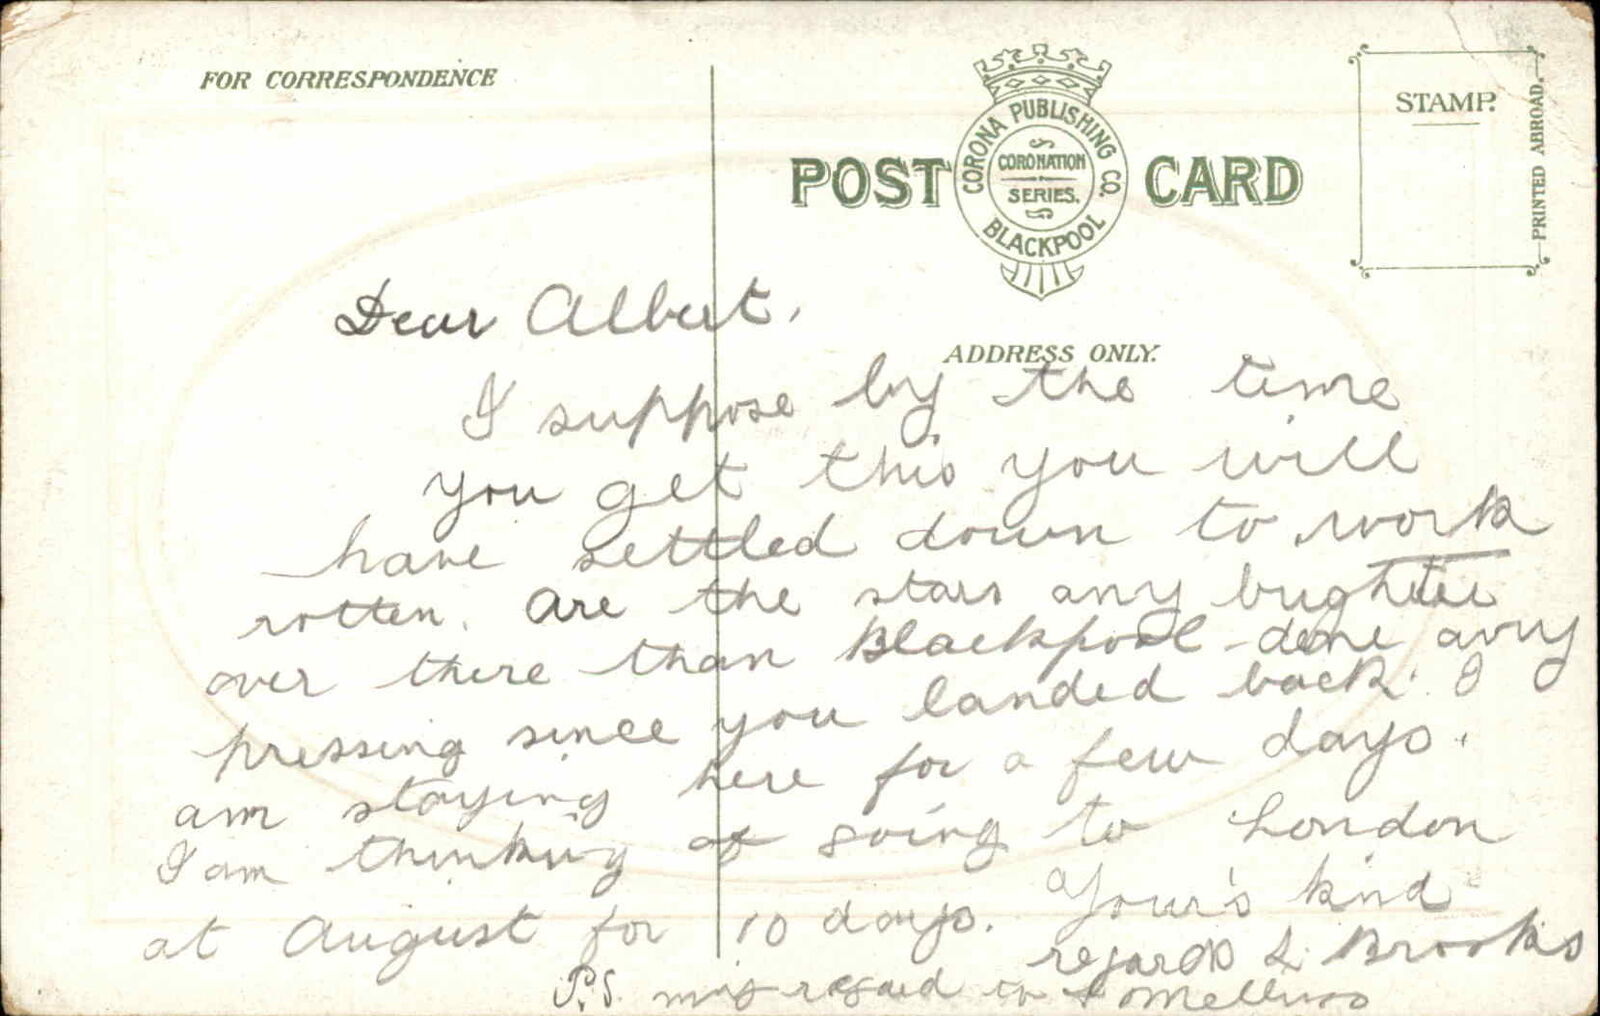 FOR CORRESPONDENCE
POST CARD
CORONA PUBLISHING CO.
BLACKPOOL
CORONATION
SERIES.
STAMP.
PRINTED ABROAD.
ADDRESS ONLY.
Dear Albert,
I suppose by the time
you get this you will
have settled down to work
rotten. Are the stars any brighter
over there than Blackpool done any
pressing since you landed back. I
am staying here for a few days.
I am thinking of going to London
at August for 10 days. Your's kind
regards L. Brooks
P.S. regard to